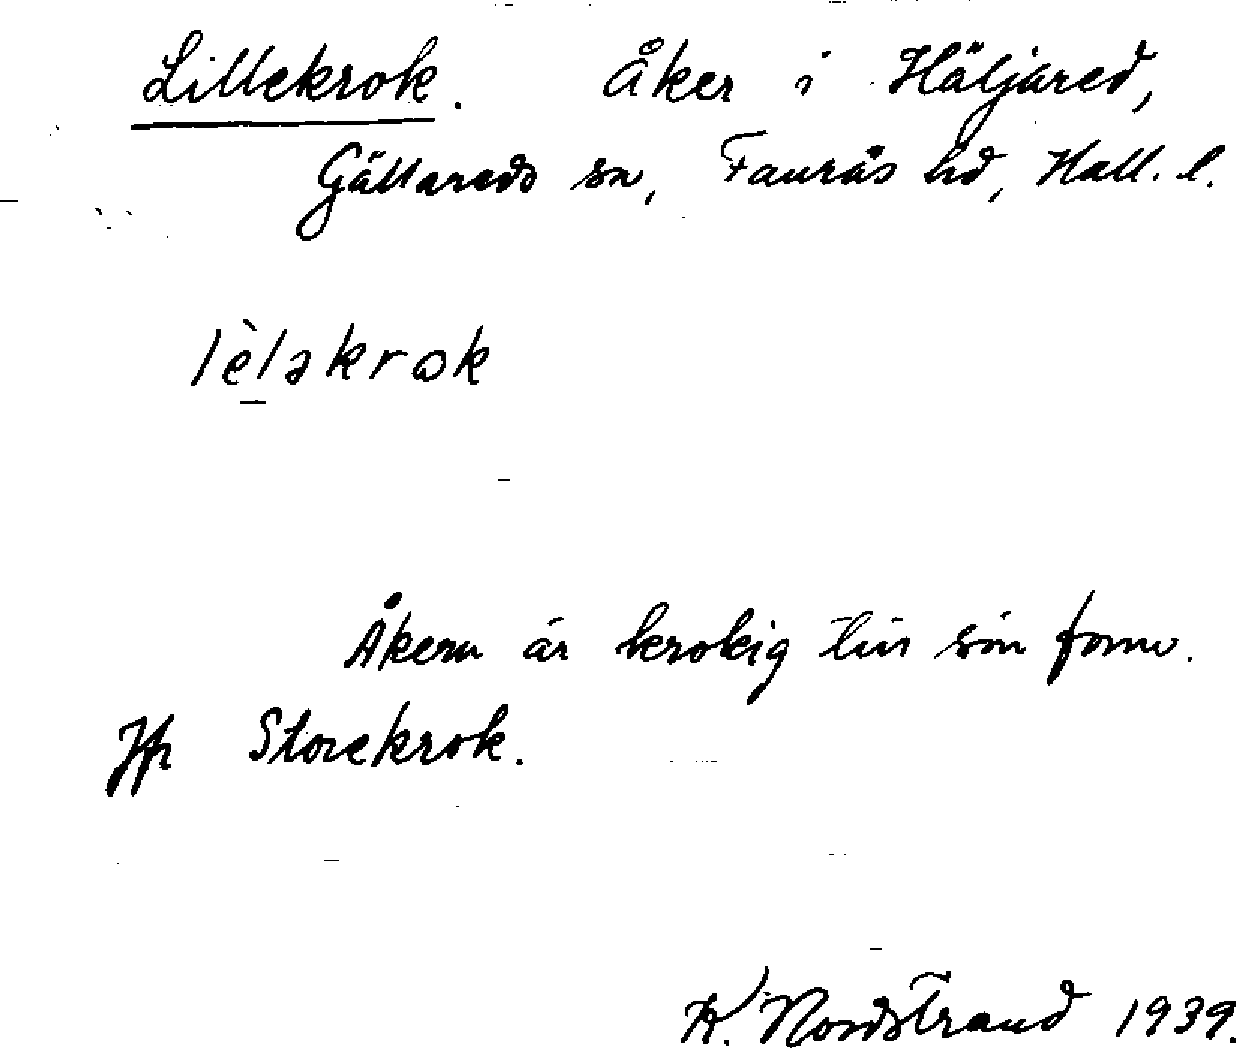 Lillekrok. Åker i Häljared,
Gällareds sn, Faurås hd, Hall. l.
lèləkrɷk
Åkern är krokig till sin form.
Jfr Storekrok.
K. Nordstrand 1939.